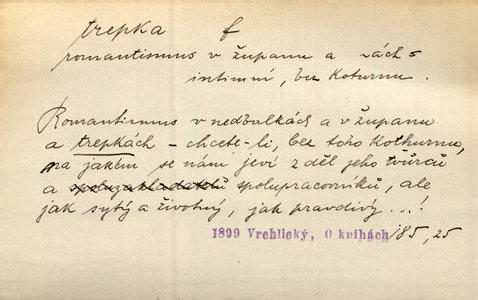 trepka f
romantismus v županu a –ách =
intimní, bez Koturnu.
Romantismus v nedbalkách a v županu
a trepkách – chcete-li, bez toho Kothurnu,
na jakém se nám jeví z děl jeho tvůrců
a spoluzakladatelů spolupracovníků, ale
jak sytý a životný, jak pravdivý...!
1899 Vrchlický, O knihách 185, 25